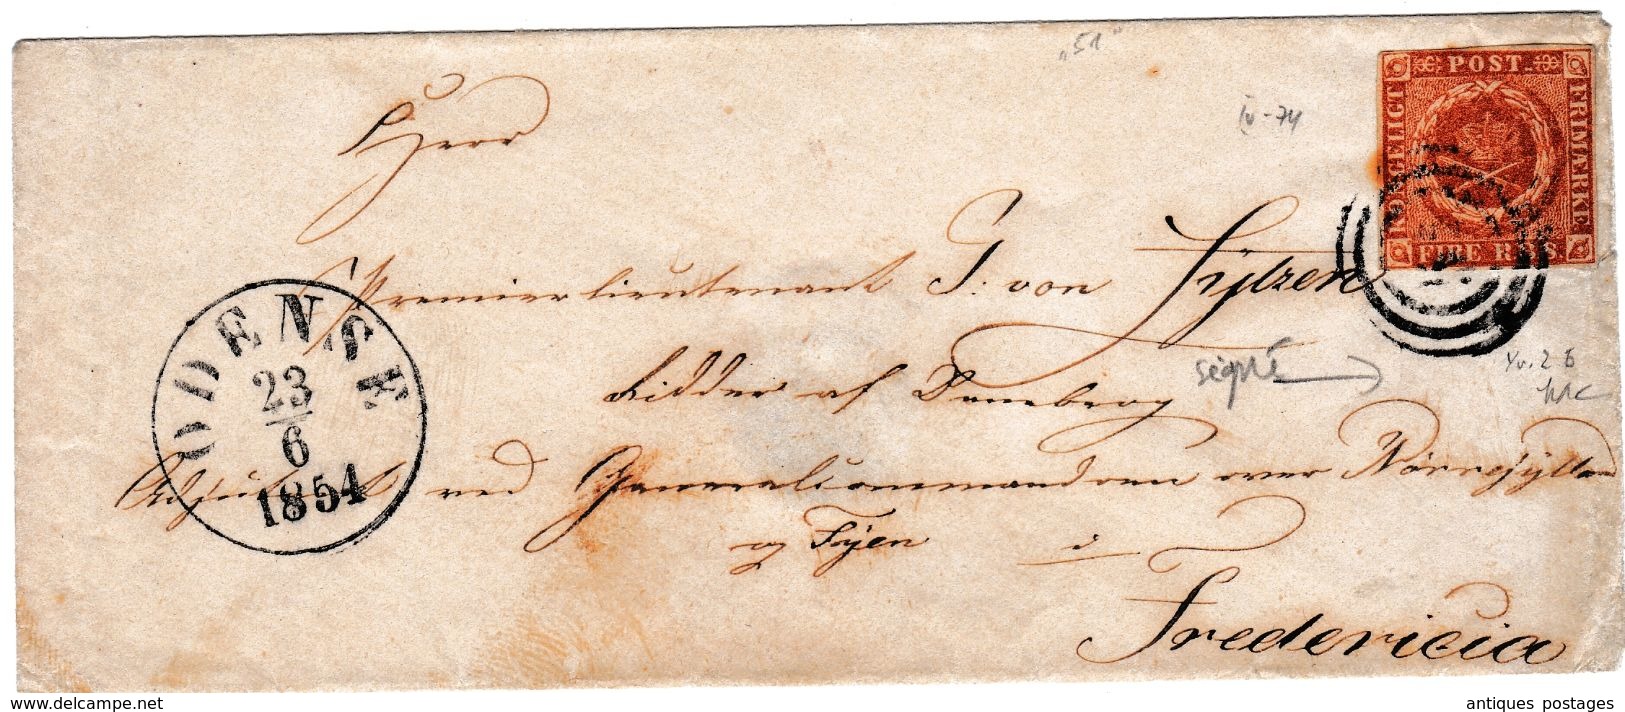 „51“
IV-74
KONGELIGT
POST
FRIMÆRKE
FIRE R.B.S.
Herr
Premierlieutenant G: von
Ridder af Danebrog
signé
Yv. 2 b
Adjutant ved Generalcommandoen over Nørrejylland
og Fyen i
Fredericia
ODENSE
23
6
1854
delcampe.net
antiques postages